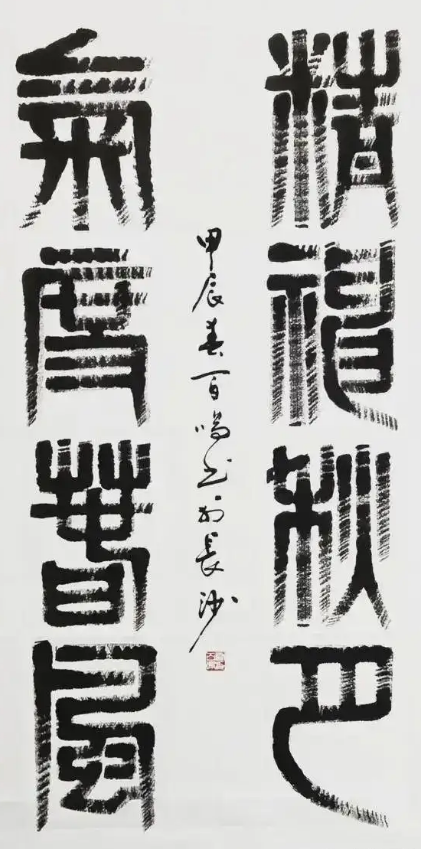 精神秋月
氣度春風
甲辰春百鳴书於長沙